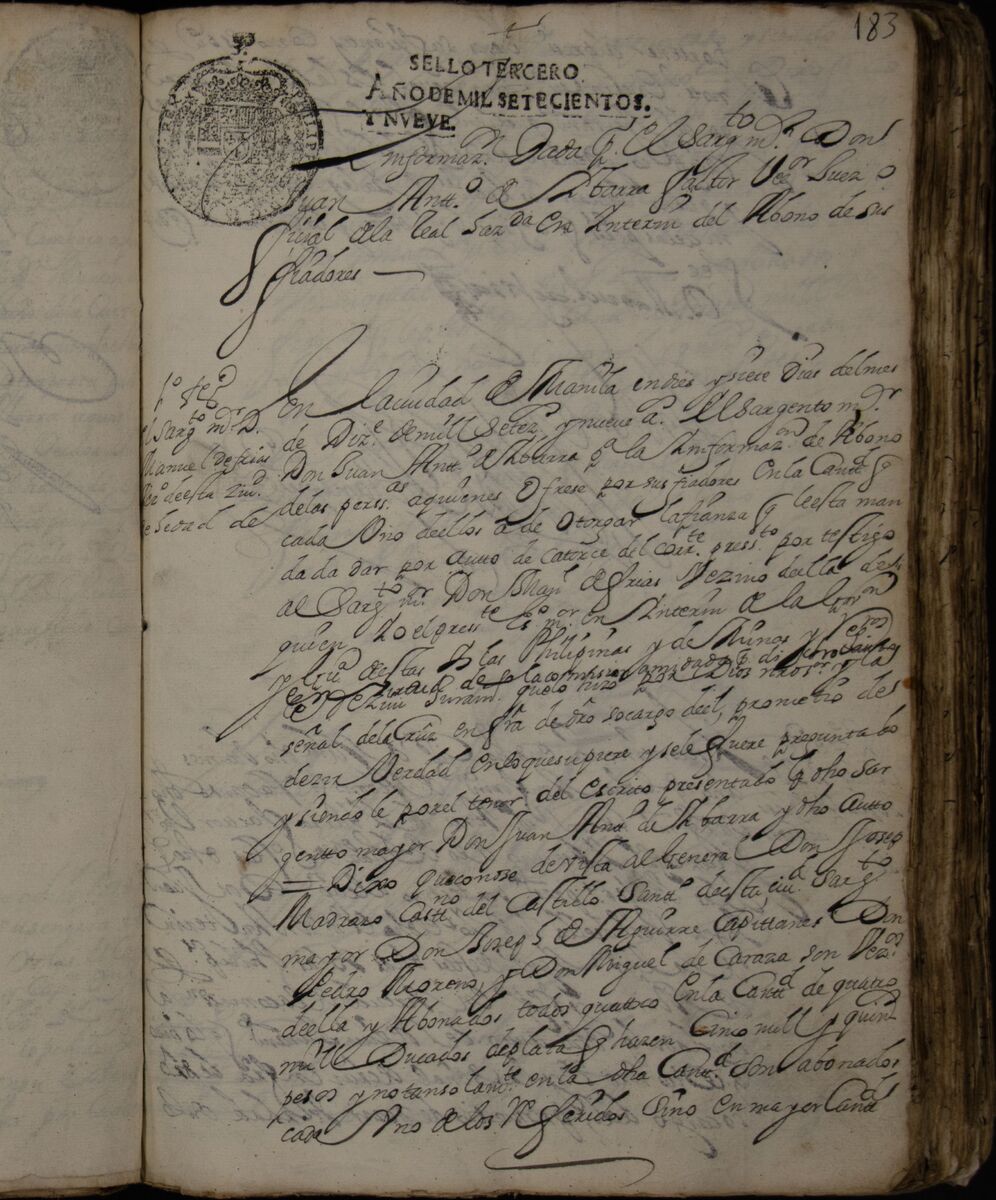 183
SELLO TERCERO
AÑO DE MIL SETECIENTOS.
Y NVEVE.
Informazn. Dada pr. el Sargto mr. Don
Juan Antto. de Ibarra Pastor Veedor Juez o
ficial dela Real Hazda en Interin del Abono de sus
fiadores —
1º tego
el Sargto mr. D.
Manuel de frias
Vzo. de esta Ziud.
de hedad de
En la ciudad de Manila en dies y siete Dias del mes
de Dize. de mill Setezs. y nueve as. El Sargento mr.
Don Juan Antto. de Ibarra pa. la Informazon de Abono
delas perssas. aquienes Ofrese por sus fiadores en la Cantd q
cada Uno deellos a de Otorgar la fianza q leesta man
dada dar por Auto de Catorce del corrte. pressto. por testigo
al Sargto mr. Don Manl. de frias Vezino deella de
quien Yo el presste Esno. mor. en Interin de la Govron.
y Gua. destas Islas Philipinas y de Minas y Regros
en virtud de la comision amidada pr. dicho auto
recivi Juramto. que lo hizo por Dios nro sr. y la
señal de la Cruz en fra. de dro so cargo del, prometio de
dezir Verdad en lo que supiere y sele fuere preguntado
y siendole por el tenor del escrito presentado pr. dho Sar
gentto mayor Don Juan Antto. de Ibarra y dho autto
= Dixo que conose de vista al General Don Joseph
Madrazo Castno. del Castillo Santgo. de esta ciud. Sargto
mayor Don Joseph de Aguirre Capittanes Don
Pedro Moreno, y Don Miguel de Caraza son Vezos.
deella y Abonados todos quattro en la Cantd. de quatro
mill Ducados de plata q hazen Cinco mill y quintos
pesos y no tan solamte. en la dha Cantd. son abonados
cada Uno de los Referidos Sino en mayor Cantd